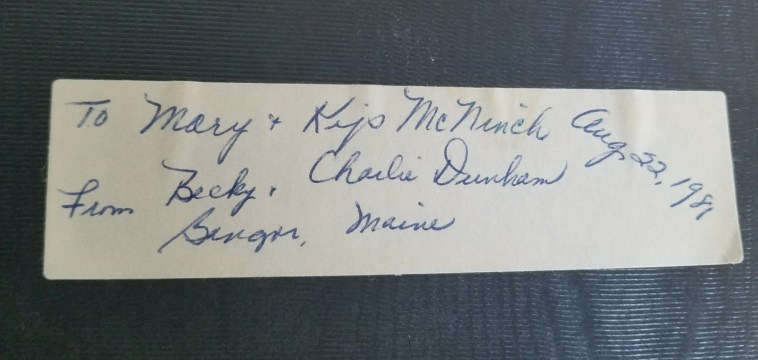 To Mary + Kip McNinch Aug 22, 1981
From Becky + Charlie Dunham
Bangor, Maine